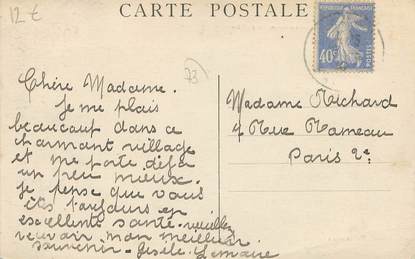 12 €
CARTE POSTALE
RÉPUBLIQUE FRANÇAISE
40c
POSTES
73
Chère Madame.
Je me plais
beaucoup dans ce
charmant village
et me porte déjà
un peu mieux.
Je pense que vous
êtes toujours en
excellente santé. veuillez
recevoir mon meilleur
souvenir - Gisèle Lemaire
Madame Richard
4 Rue Rameau
Paris 2e